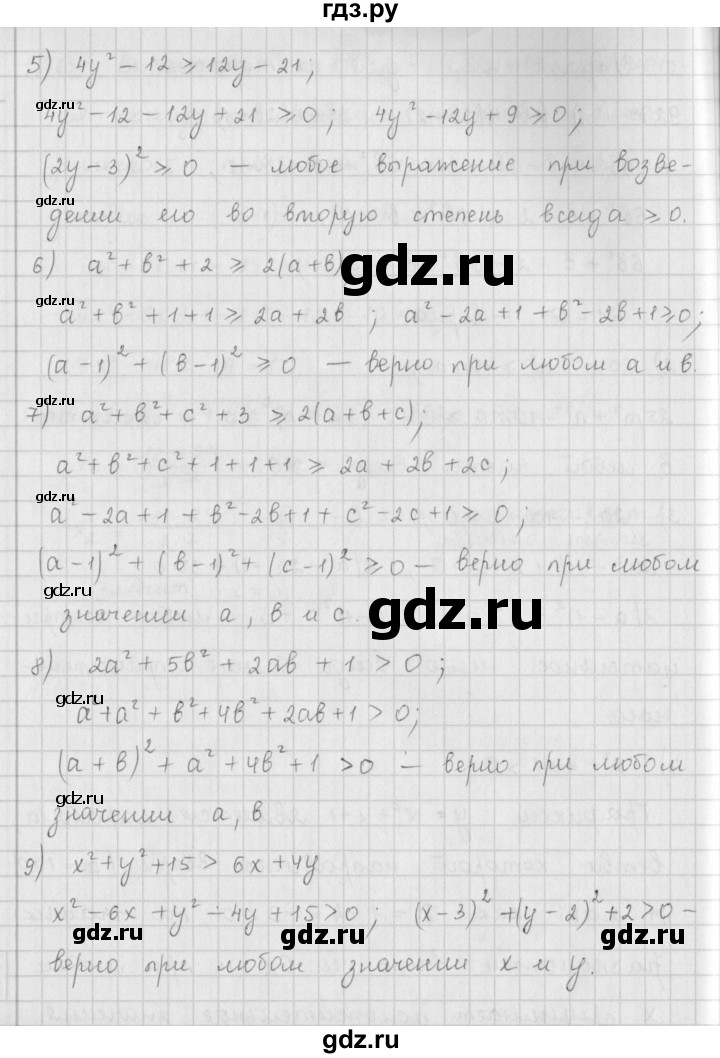 гдз.ру
5) 4y² − 12 ⩾ 12y − 21;
gdz.ru
4y² − 12 − 12y + 21 ⩾ 0; 4y² − 12y + 9 ⩾ 0;
(2y − 3)² ⩾ 0 — любое выражение при возве-
gdz.ru
дении его во вторую степень всегда ⩾ 0.
6) a² + b² + 2 ⩾ 2(a + b)
gdz.ru
gdz.ru
a² + b² + 1 + 1 ⩾ 2a + 2b ; a² − 2a + 1 + b² − 2b + 1 ⩾ 0;
gdz.ru
(a − 1)² + (b − 1)² ⩾ 0 — верно при любом a и b.
7) a² + b² + c² + 3 ⩾ 2(a + b + c);
gdz.ru
a² + b² + c² + 1 + 1 + 1 ⩾ 2a + 2b + 2c;
gdz.ru
a² − 2a + 1 + b² − 2b + 1 + c² − 2c + 1 ⩾ 0;
(a − 1)² + (b − 1)² + (c − 1)² ⩾ 0 — верно при любом
gdz.ru
gdz.ru
значении a, b и c.
8) 2a² + 5b² + 2ab + 1 > 0;
gdz.ru
a² + a² + b² + 4b² + 2ab + 1 > 0;
(a + b)² + a² + 4b² + 1 > 0 — верно при любом
gdz.ru
значении a, b
9) x² + y² + 15 > 6x + 4y
gdz.ru
x² − 6x + y² − 4y + 15 > 0; (x − 3)² + (y − 2)² + 2 > 0 —
gdz.ru
gdz.ru
gdz.ru
верно при любом значении x и y.
gdz.ru